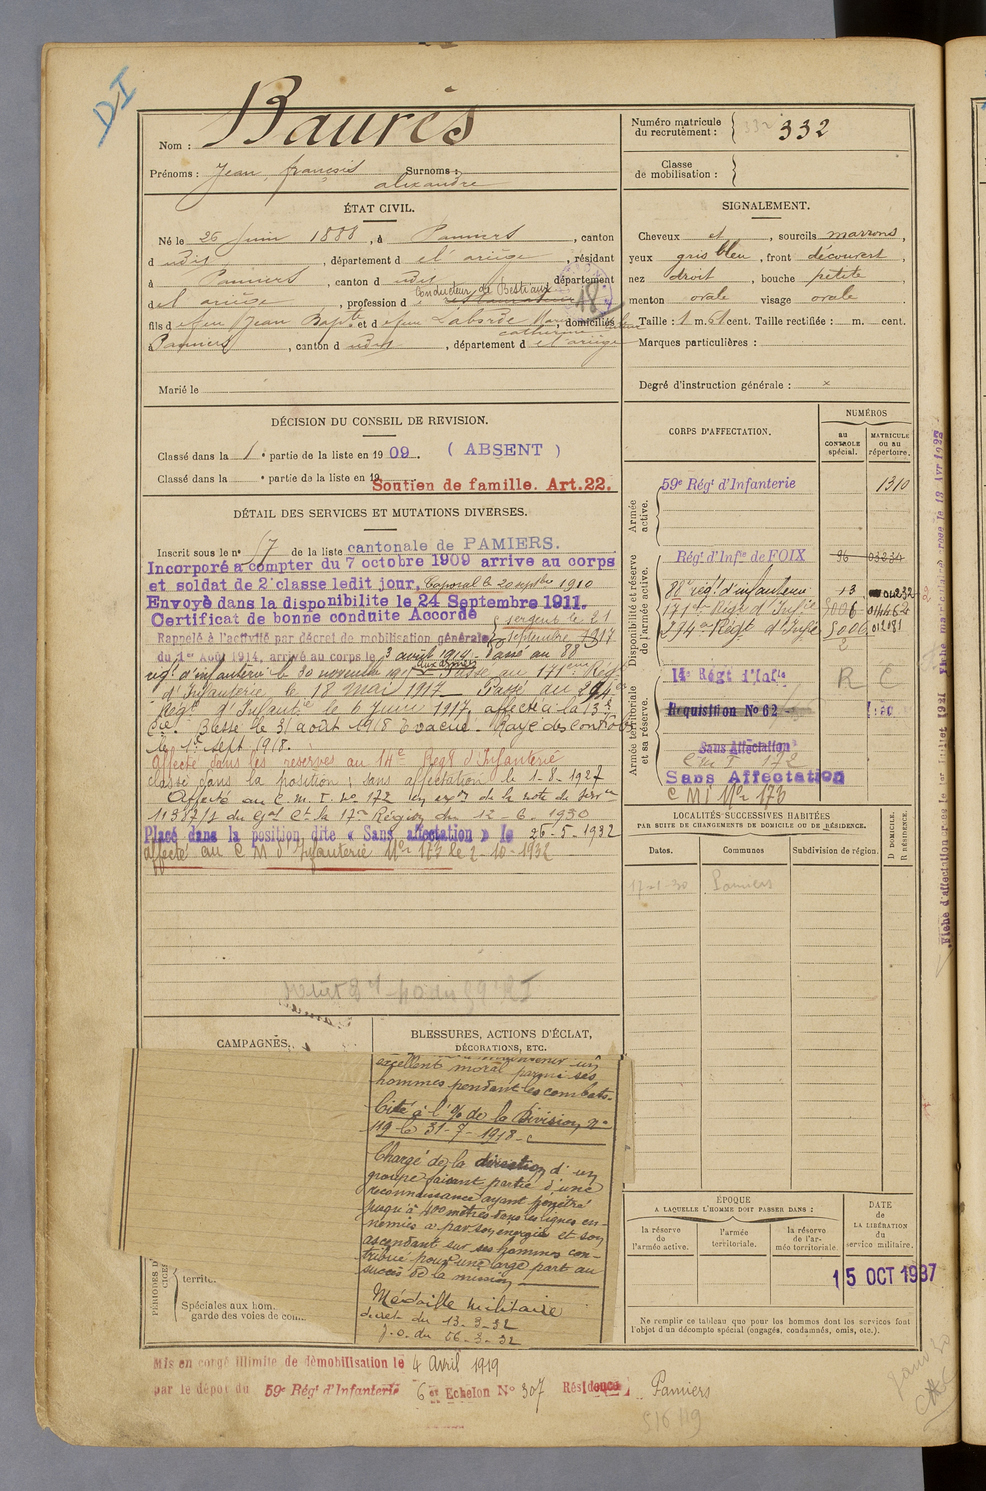 DI
Nom : Baurès
Prénoms : Jean, françois Surnoms :
alexandre
Numéro matricule
du recrutement : 332
Classe
de mobilisation :
ÉTAT CIVIL.
Né le 26 Juin 1888, à Pamiers, canton
d udit, département d el' ariège, résidant
à Pamiers, canton d udit, département
d el ariège, profession d Conducteur de Bestiaux
18
fils d e feu Jean Bapte et d e feue Laborde, domiciliés
catherine
à Pamiers, canton d udit, département d el ariège
Marié le
SIGNALEMENT.
Cheveux et, sourcils marrons,
yeux gris bleu, front découvert,
nez droit, bouche petite,
menton ovale visage ovale
Taille : 1 m. 61 cent. Taille rectifiée : m. cent.
Marques particulières :
Degré d'instruction générale : x
DÉCISION DU CONSEIL DE REVISION.
Classé dans la 1e partie de la liste en 1909. ( ABSENT )
Classé dans la e partie de la liste en 19
Soutien de famille. Art.22.
DÉTAIL DES SERVICES ET MUTATIONS DIVERSES.
Inscrit sous le no 17 de la liste cantonale de PAMIERS.
Incorporé à compter du 7 octobre 1909 arrive au corps
et soldat de 2e classe ledit jour, Caporal le 20 septbre 1910
Envoyé dans la disponibilite le 24 Septembre 1911.
Certificat de bonne conduite Accordé
sergent le 21
septembre 1917
Rappelé à l'activité par décret de mobilisation générale
du 1er Août 1914, arrivé au corps le 3 août 1914. Passé au 88
regt d'infanterie le 30 novembre 1915 Passé au 171eme Régt
aux armées
d'Infanterie, le 18 Mai 1917 Passé au 294e
Régt d'Infantie le 6 Juin 1917 affecté à la 13e
Cie. Blessé le 31 août 1918 Evacué. Rayé des Controles
le 1er Sept 1918.
Affecté dans les reserves au 14e Regt d'Infanterie
classé dans la position sans affectation le 1-8-1927
Affecté au C. M. I. no 172 en exon de la note de servce
11387/1 du Gal Ct la 17e Région du 12-6-1930
Placé dans la position dite « Sans affectation » le 26-5-1932
affecté au C M d'Infanterie No 173 le 2-10-1932
CORPS D'AFFECTATION.
NUMÉROS
au
CONTROLE
spécial.
MATRICULE
ou au
répertoire.
Armée
active.
59e Régt d'Infanterie 1310
Disponibilité et réserve
de l'armée active.
Régt d'Infie de FOIX 96 03234
88e régt d'infanterie 13 01232
171e Régt d'Infie 7006 014462
294e Régt d'Infie 5006 012081
2
Armée territoriale
et sa réserve.
14e Régt d'Infie R C
Requisition No 62
Sans Affectation
C M I 172
Sans Affectation
C M I No 173
Fiche d'affectation créée le 1er Juillet 1921
LOCALITÉS SUCCESSIVES HABITÉES
PAR SUITE DE CHANGEMENTS DE DOMICILE OU DE RÉSIDENCE.
Dates.
Communes
Subdivision de région.
D DOMICILE.
R RÉSIDENCE.
17-1-30 Pamiers
CAMPAGNES.
BLESSURES, ACTIONS D'ÉCLAT,
DÉCORATIONS, ETC.
maintenir un
excellent moral parmi ses
hommes pendant les combats.
Cité à l'% de la Division no
119 le 31-7-1918
Chargé de la direction d'un
groupe faisant partie d'une
reconnaissance ayant pénétré
jusqu'à 400 mètres dans les lignes en-
nemies a par son energie et son
ascendant sur ses hommes con-
tribué pour une large part au
succès de la mission
Médaille militaire
decret du 13-3-32
J.O. du 16-3-32
territo
Spéciales aux hom.
garde des voies de com
ÉPOQUE
A LAQUELLE L'HOMME DOIT PASSER DANS :
la réserve
de l'armée active.
l'armée
territoriale.
la réserve
de l'ar-
mée territoriale.
DATE
de
LA LIBÉRATION
du
service militaire.
15 OCT 1937
Ne remplir ce tableau que pour les hommes dont les services font
l'objet d'un décompte spécial (engagés, condamnés, omis, etc.).
Mis en congé illimité de démobilisation le 4 Avril 1919
par le dépôt du 59e Régt d'Infanterie 6e Echelon No 307 Résidence Pamiers